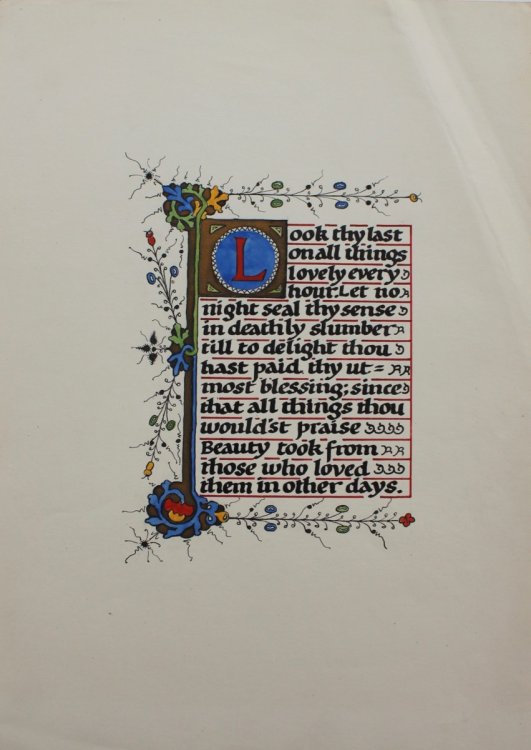 Look thy last
on all things
lovely every
hour. Let no
night seal thy sense
in deathly slumber
till to delight thou
hast paid thy ut=
most blessing; since
that all things thou
would'st praise
Beauty took from
those who loved
them in other days.